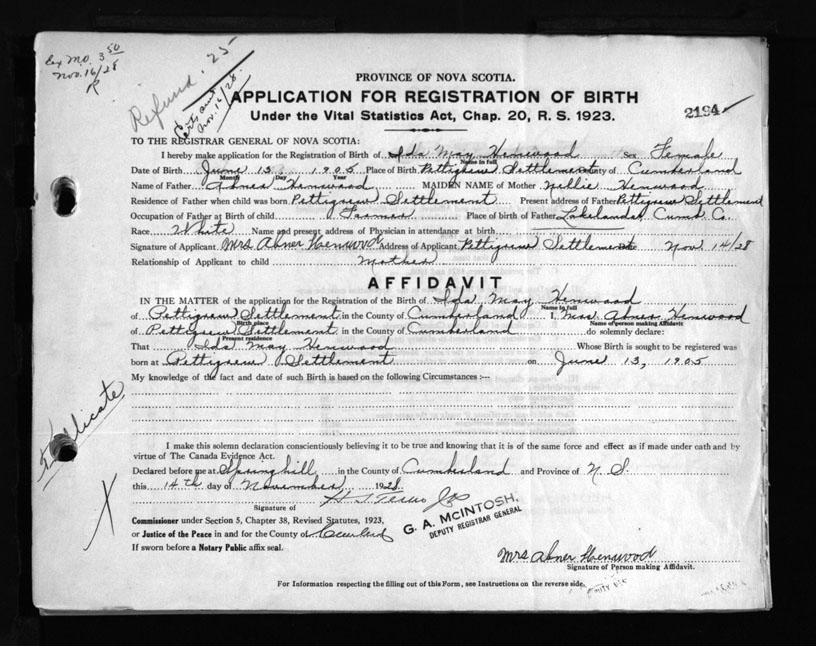 Ex M.O. 3.50
Nov. 16/28
Refund .25
Nov. 16/28.
PROVINCE OF NOVA SCOTIA.
APPLICATION FOR REGISTRATION OF BIRTH
Under the Vital Statistics Act, Chap. 20, R. S. 1923.
2194
TO THE REGISTRAR GENERAL OF NOVA SCOTIA:
I hereby make application for the Registration of Birth of Ida May Henwood Sex Female
Name in full
Date of Birth June 13 1905 Place of Birth Pettigrew Settlement County of Cumberland
Month Day Year
Name of Father Abner Henwood MAIDEN NAME of Mother Nellie Henwood
Residence of Father when child was born Pettigrew Settlement Present address of Father Pettigrew Settlement
Occupation of Father at Birth of child Farmer Place of birth of Father Lakelands Cumb. Co.
Race White Name and present address of Physician in attendance at birth
Signature of Applicant Mrs Abner Henwood Address of Applicant Pettigrew Settlement Date Nov 14/28
Relationship of Applicant to child Mother
AFFIDAVIT
IN THE MATTER of the application for the Registration of the Birth of Ida May Henwood
Name in full
of Pettigrew Settlement in the County of Cumberland I, Mrs Abner Henwood
Birth place Name of person making Affidavit
of Pettigrew Settlement in the County of Cumberland do solemnly declare:
Present residence
That Ida May Henwood Whose Birth is sought to be registered was
born at Pettigrew Settlement on June 13, 1905
My knowledge of the fact and date of such Birth is based on the following Circumstances :—
I make this solemn declaration conscientiously believing it to be true and knowing that it is of the same force and effect as if made under oath and by
virtue of The Canada Evidence Act.
Declared before me at Springhill in the County of Cumberland and Province of N. S.
this 14th day of November 1928
Signature of
Commissioner under Section 5, Chapter 38, Revised Statutes, 1923,
or Justice of the Peace in and for the County of Cumberland
If sworn before a Notary Public affix seal.
G. A. McINTOSH,
DEPUTY REGISTRAR GENERAL
Mrs Abner Henwood
Signature of Person making Affidavit.
For Information respecting the filling out of this Form, see Instructions on the reverse side.